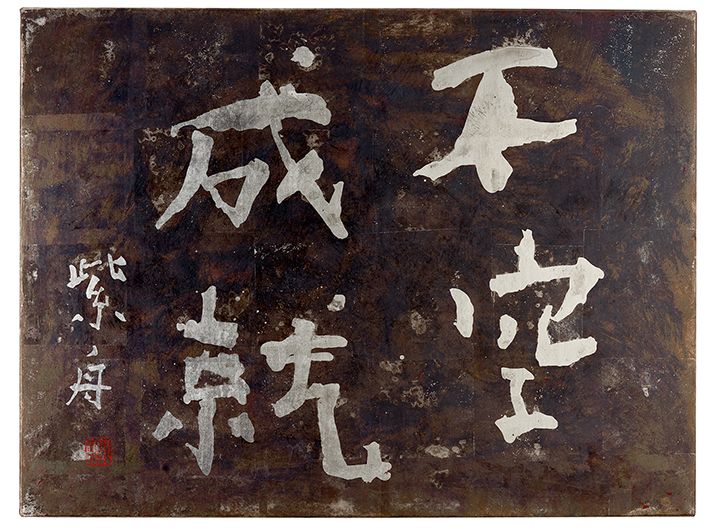 不空
成就
紫舟